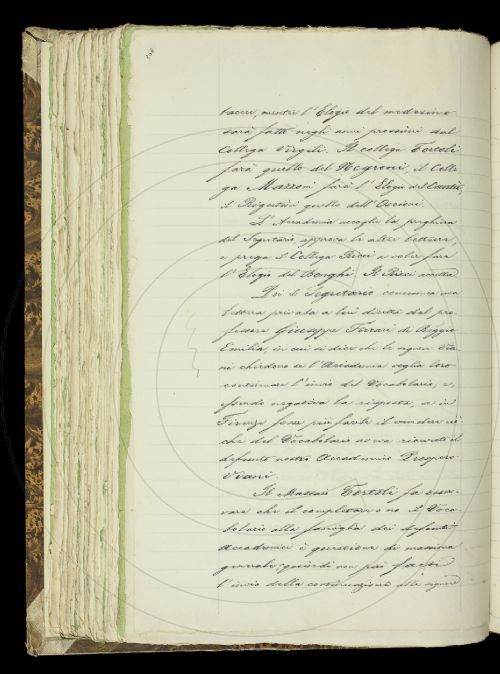 tacere, mentre l'Elogio del medesimo
sarà fatto negli anni prossimi dal
Collega Virgili. Il collega Tortoli
farà quello del Negroni, il Colle-
ga Mazzoni farà l'Elogio del Canello,
il Rigutini quello dell'
L'Accademia accoglie la preghiera
del Segretario, approva le altre letture,
e prega il Collega Ricci a voler fare
l'Elogio del Bonghi. Il Ricci accetta.
Poi il Segretario comunica una
lettera privata a lui diretta dal pro-
fessore Giuseppe Ferrari di Reggio
Emilia, in cui si dice che le signore Via-
ni chiedono se l'Accademia voglia loro
continuare l'invio del Vocabolario, e,
essendo negativa la risposta, se in
Firenze fosse più facile il vendere ciò
che del Vocabolario aveva ricevuto il
defunto nostro Accademico Prospero
Viani.
Il Massaio Tortoli fa osser-
vare che il completare o no il Voca-
bolario alle famiglie dei defunti
accademici è questione di massima
generale; quindi non può farsi
l'invio della continuazione alle signore